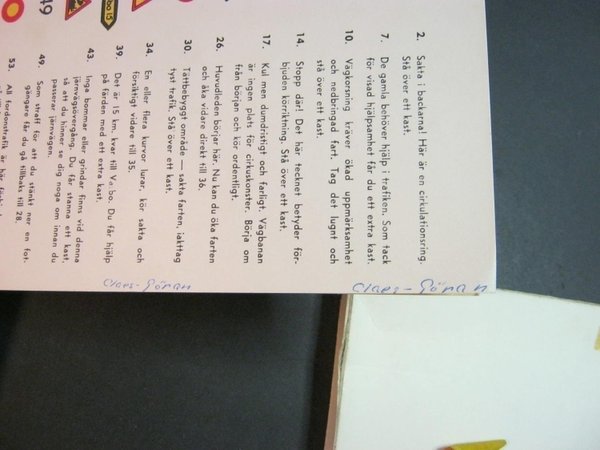 2. Sakta i backarna! Här är en cirkulationsring.
Stå över ett kast.
7. De gamla behöver hjälp i trafiken. Som tack
för visad hjälpsamhet får du ett extra kast.
10. Vägkorsning kräver ökad uppmärksamhet
och nedbringad fart. Tag det lugnt och
stå över ett kast.
14. Stopp där! Det här tecknet betyder för-
bjuden körriktning. Stå över ett kast.
17. Kul men dumdristigt och farligt. Vägbanan
är ingen plats för cirkuskonster. Börja om
från början och kör ordentligt.
26. Huvudleden börjar här. Nu kan du öka farten
och åka vidare direkt till 36.
30. Tättbebyggt område — sakta farten, iakttag
tyst trafik. Stå över ett kast.
34. En eller flera kurvor lurar, kör sakta och
försiktigt vidare till 35.
39. Det är 15 km. kvar till V a: bo. Du får hjälp
på färden med ett extra kast.
43. Inga bommar eller grindar finns vid denna
järnvägsövergång. Du får stanna ett kast
så att du hinner se dig noga om innan du
passerar järnvägen.
49. Som straff för att du stänkt ner en fot-
gängare får du gå tillbaks till 28.
53. All fordonstrafik är här
49
bo 15
Claes-Göran
Claes-Göran